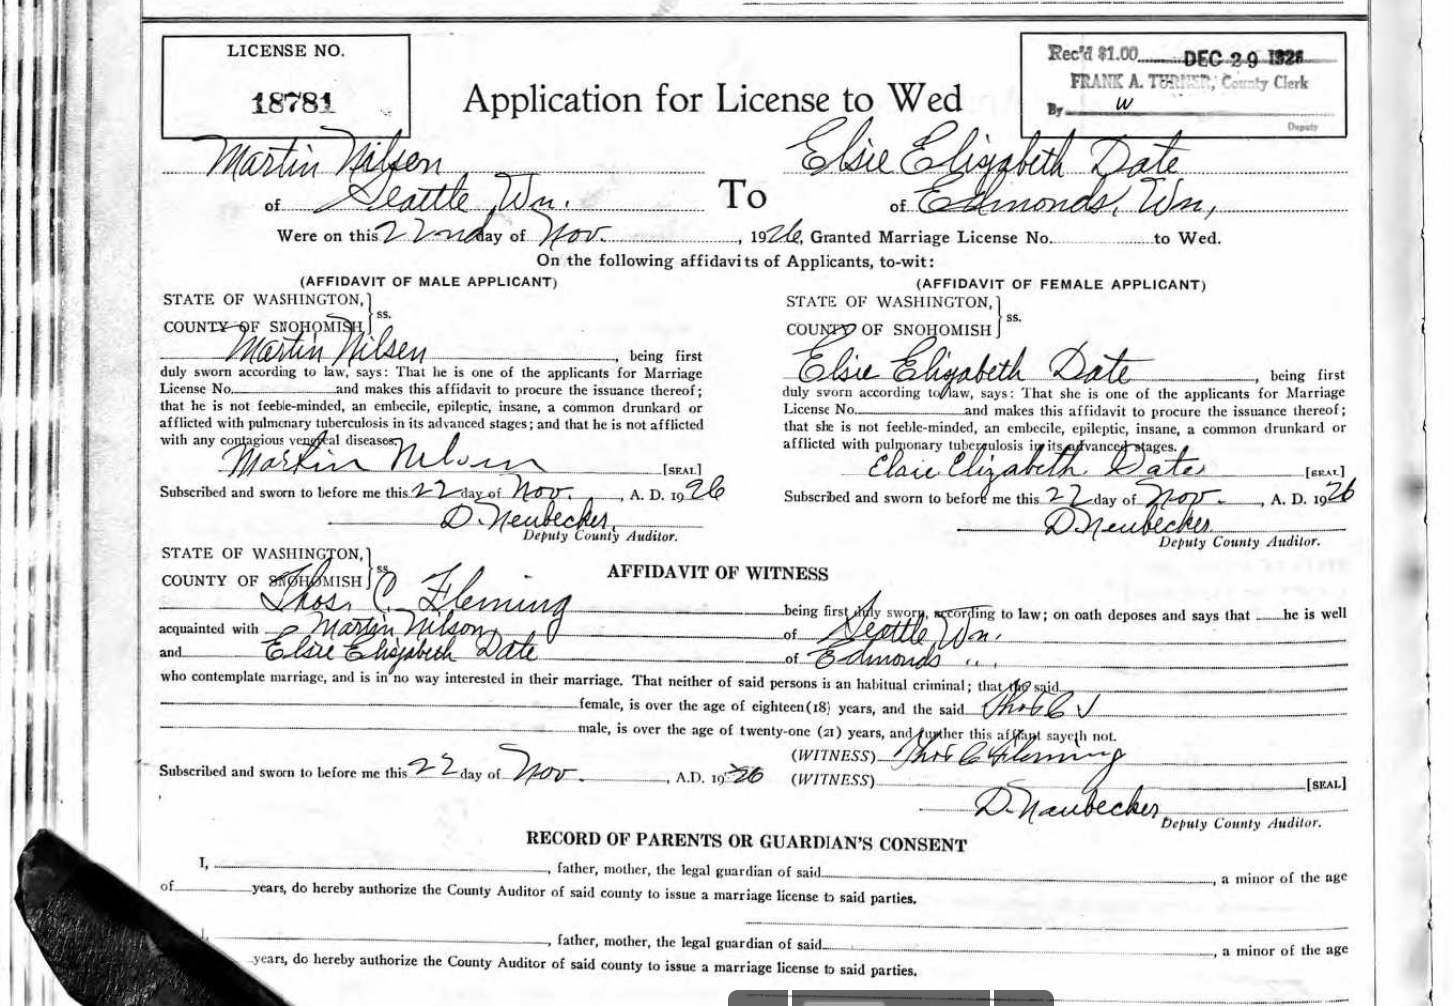 LICENSE NO.
18781
Application for License to Wed
Rec'd $1.00 DEC 29 1926
FRANK A. TURNER, County Clerk
By W
Deputy
Martin Nilsen
Elsie Elizabeth Date
To
of Seattle Wn.
of Edmonds, Wn,
Were on this 22nd day of Nov. , 1926, Granted Marriage License No. to Wed.
On the following affidavits of Applicants, to-wit:
(AFFIDAVIT OF MALE APPLICANT)
STATE OF WASHINGTON, } ss.
COUNTY OF SNOHOMISH
Martin Nilsen , being first
duly sworn according to law, says: That he is one of the applicants for Marriage
License No. and makes this affidavit to procure the issuance thereof;
that he is not feeble-minded, an embecile, epileptic, insane, a common drunkard or
afflicted with pulmonary tuberculosis in its advanced stages; and that he is not afflicted
with any contagious venereal diseases.
Martin Nilsen [SEAL]
Subscribed and sworn to before me this 22 day of Nov. , A. D. 1926
D. Neubecker,
Deputy County Auditor.
(AFFIDAVIT OF FEMALE APPLICANT)
STATE OF WASHINGTON, } ss.
COUNTY OF SNOHOMISH
Elsie Elizabeth Date , being first
duly sworn according to law, says: That she is one of the applicants for Marriage
License No. and makes this affidavit to procure the issuance thereof;
that she is not feeble-minded, an embecile, epileptic, insane, a common drunkard or
afflicted with pulmonary tuberculosis in its advanced stages.
Elsie Elizabeth Date [SEAL]
Subscribed and sworn to before me this 22 day of Nov. , A. D. 1926
D Neubecker
Deputy County Auditor.
STATE OF WASHINGTON, } ss.
COUNTY OF SNOHOMISH
AFFIDAVIT OF WITNESS
Thos. C. Fleming being first duly sworn, according to law; on oath deposes and says that he is well
acquainted with Martin Nilson, of Seattle Wn.
and Elsie Elizabeth Date of Edmonds " ,
who contemplate marriage, and is in no way interested in their marriage. That neither of said persons is an habitual criminal; that the said
female, is over the age of eighteen (18) years, and the said
male, is over the age of twenty-one (21) years, and further this affiant sayeth not.
(WITNESS) Thos C Fleming
Subscribed and sworn to before me this 22 day of Nov. , A.D. 1926 (WITNESS) [SEAL]
D. Neubecker
Deputy County Auditor.
RECORD OF PARENTS OR GUARDIAN'S CONSENT
I, , father, mother, the legal guardian of said , a minor of the age
of years, do hereby authorize the County Auditor of said county to issue a marriage license to said parties.
I, , father, mother, the legal guardian of said , a minor of the age
years, do hereby authorize the County Auditor of said county to issue a marriage license to said parties.